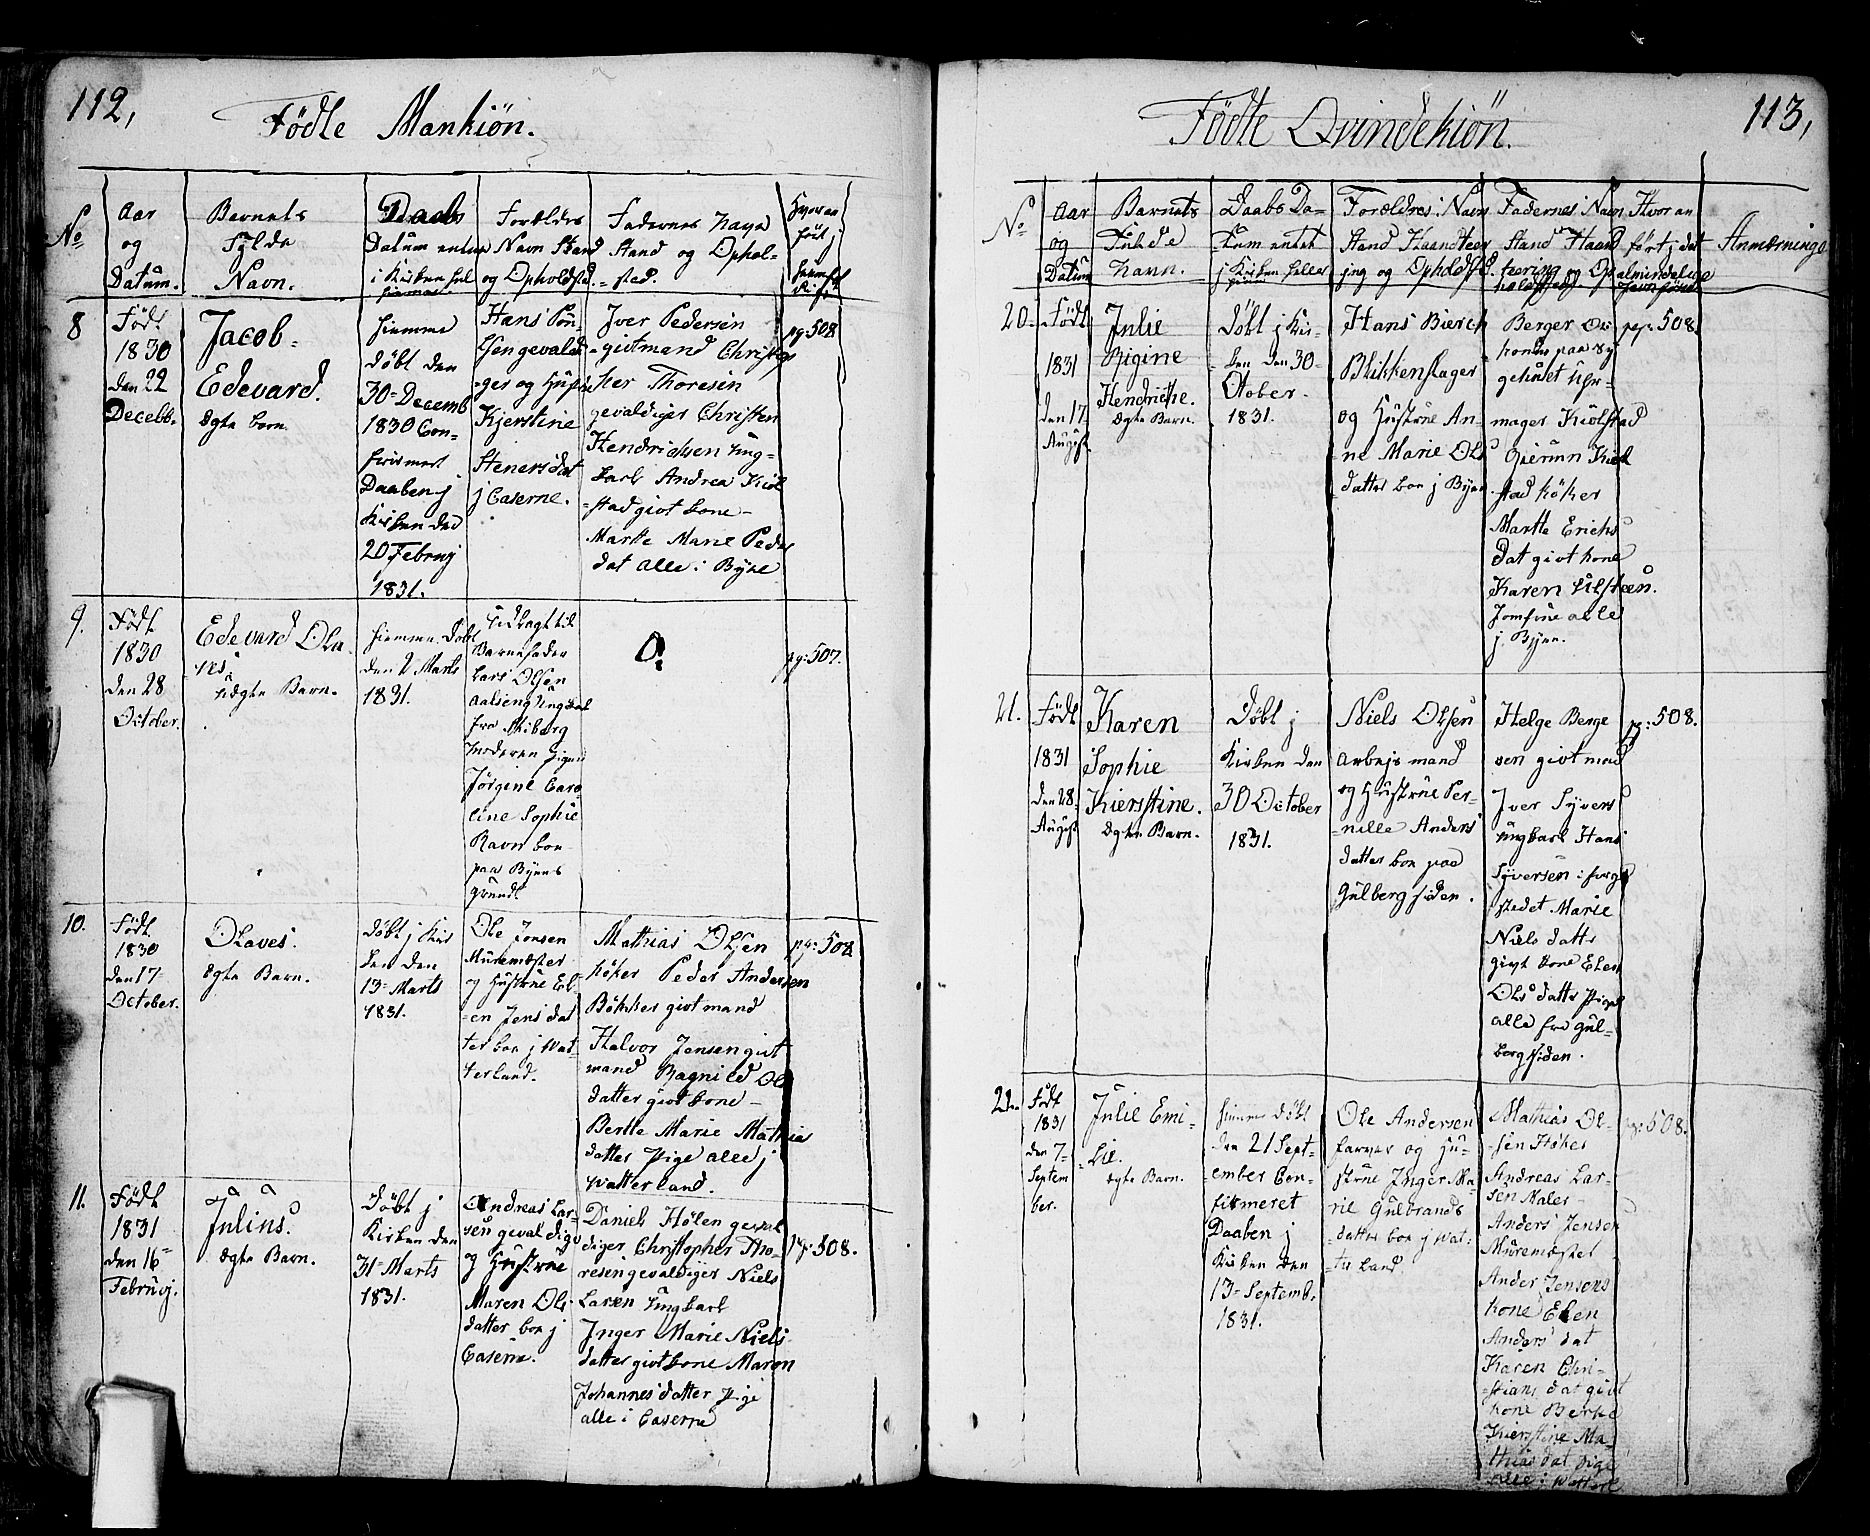 112,
Födte Mankiön.
No
Aar
og
Datum.
Barnets
Fulde
Navn.
Daabs
Datum enten
i Kirken hel
hiemme
Forældre
Navn Stand
og Opholdsted
Fadernes Navn
Stand og Ophol-
-sted.
Hvoran
fört j
8
Födt
1830
den 22
Decebb.
Jacob
Edevard.
Ægte barn
hiemme
döbt den
30= Decemb
1830 Con-
firmert
Daaben j
Kirken ded
20 Februj
1831.
Hans
-sengevaldi
-ger og Hustr
Kjerstine
Stenersdat
j Caserne.
Iver Pedersen
-givtmand Christop
her Thoresen
gevaldiger Christen
Hendrichsen ung-
karl Andrea Kiöl
=stad givt kone -
Marte Marie Peders
dat alle i Byne
pg 508
9.
Födt
1830
den 28
October.
Edevard Ola
ves
uægte Barn.
hiemme Döbt
den 2 Marts
1831.
Udlagt til
Barnefader
Lars Olsen
ungkal
fra
moderen Pigen
Jörgine Caro-
line Sophie
Ravn boe
paa Byens
grund.
0.
pg: 507.
10.
Födt
1830
den 17=
October.
Olaves.
Ægte Barn.
döbt j Kir
ken den
13= Marts
1831.
Ole Jonsen
Muremæster
og Hustrue El-
-en Jensdat
ter boe j Vat-
terland.
Mathias Olsen
höker Peder Andersen
Bökker givtmand
Halvor Jensen givt
mand Ragnild Ols
datter givt kone -
Berthe Marie Mathias
datter Pige alle j
Watterland.
pg: 508
11.
Födt
1831
den 16=
Februj.
Julius.
Ægte Barn.
Döbt j
Kirken den
31= Marts
1831.
Andreas Lar-
sen gevaldiger
og Hustrue
Maren Ols
datter boe j
Caserne.
Daniel Holen geval
diger Christopher Tho-
resen gevaldiger Niels
Larsen Ungkarl
Inger Marie Niels
datter givt kone Maren
Johannesdatter Pige
alle i Caserne
pg: 508.
113,
Födte Qvindekiön.
No
Aar
og
Datum
Barnets
Fulde
Navn.
Daabs Da-
tum entet
j Kirken heller
Forældres Navn
Stand Haandteer
ing og Opholdst.
Fadernes Navn
Stand Haand
teering og Op
holdsted
Hvor an
fört j det
almindelige
Anmærninge
20.
Födt
1831
den 17
August
Julie
Rigine
Hendriche.
Ægte Barn.
Döbt j Kir-
ken den 30
Otober.
1831.
Hans Bierch
Blikkenslager
og Hustrue An-
ne Marie Ols
datter boe j Byen
Berger
paa
gehuset Uhr-
mager Kiölstad
Kiöl
stad höker
Marthe Erichs
dat givt kone
Karen Ulsteen.
Jomfrue alle
j Byen.
pag: 508.
21.
Födt
1831
den 28
August
Karen
Sophie
Kierstine.
Ægte Barn.
Döbt j
Kirken den
30 October
1831.
Niels Olsen
Arbejsmand
og Hustrue Per-
nille Anders
datter boe paa
Gulbergsiden.
Helge Berge
sen givt mand
Iver Syvers
ungkarl Hans
Syversen i
stedet Marie
Nielsdatter
givt kone Elen
Olsdatter Pige
alle fra Gul-
bergsiden.
pg: 508.
22.
Födt
1831
den 7=
Septem
ber.
Julie Emi-
-lie.
Ægte Barn.
hiemme döbt
den 21 Sept-
ember Con-
firmeret
Daaben j
Kirken den
13= Septemb.
1831.
Ole Andersen
farver og Hu-
strue Inger Ma-
rie Gulbrands
datter boe j Wat-
ter land.
Mathias Ol-
sen Höker
Andreas Lar-
sen Maler
Anders Jensen
Muremæster
Ander Jensens
kone Elen
Anders dat
Karen Chri-
-stians dat givt
kone Berthe
Kierstine Ma-
thias dat Pige
alle i Watterl
pg: 508.